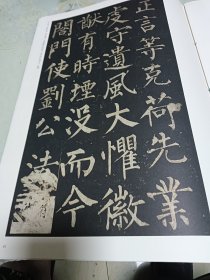 正言等克荷先業
虔守遺風大懼徽
猷有時堙没而今
閤門使劉公法